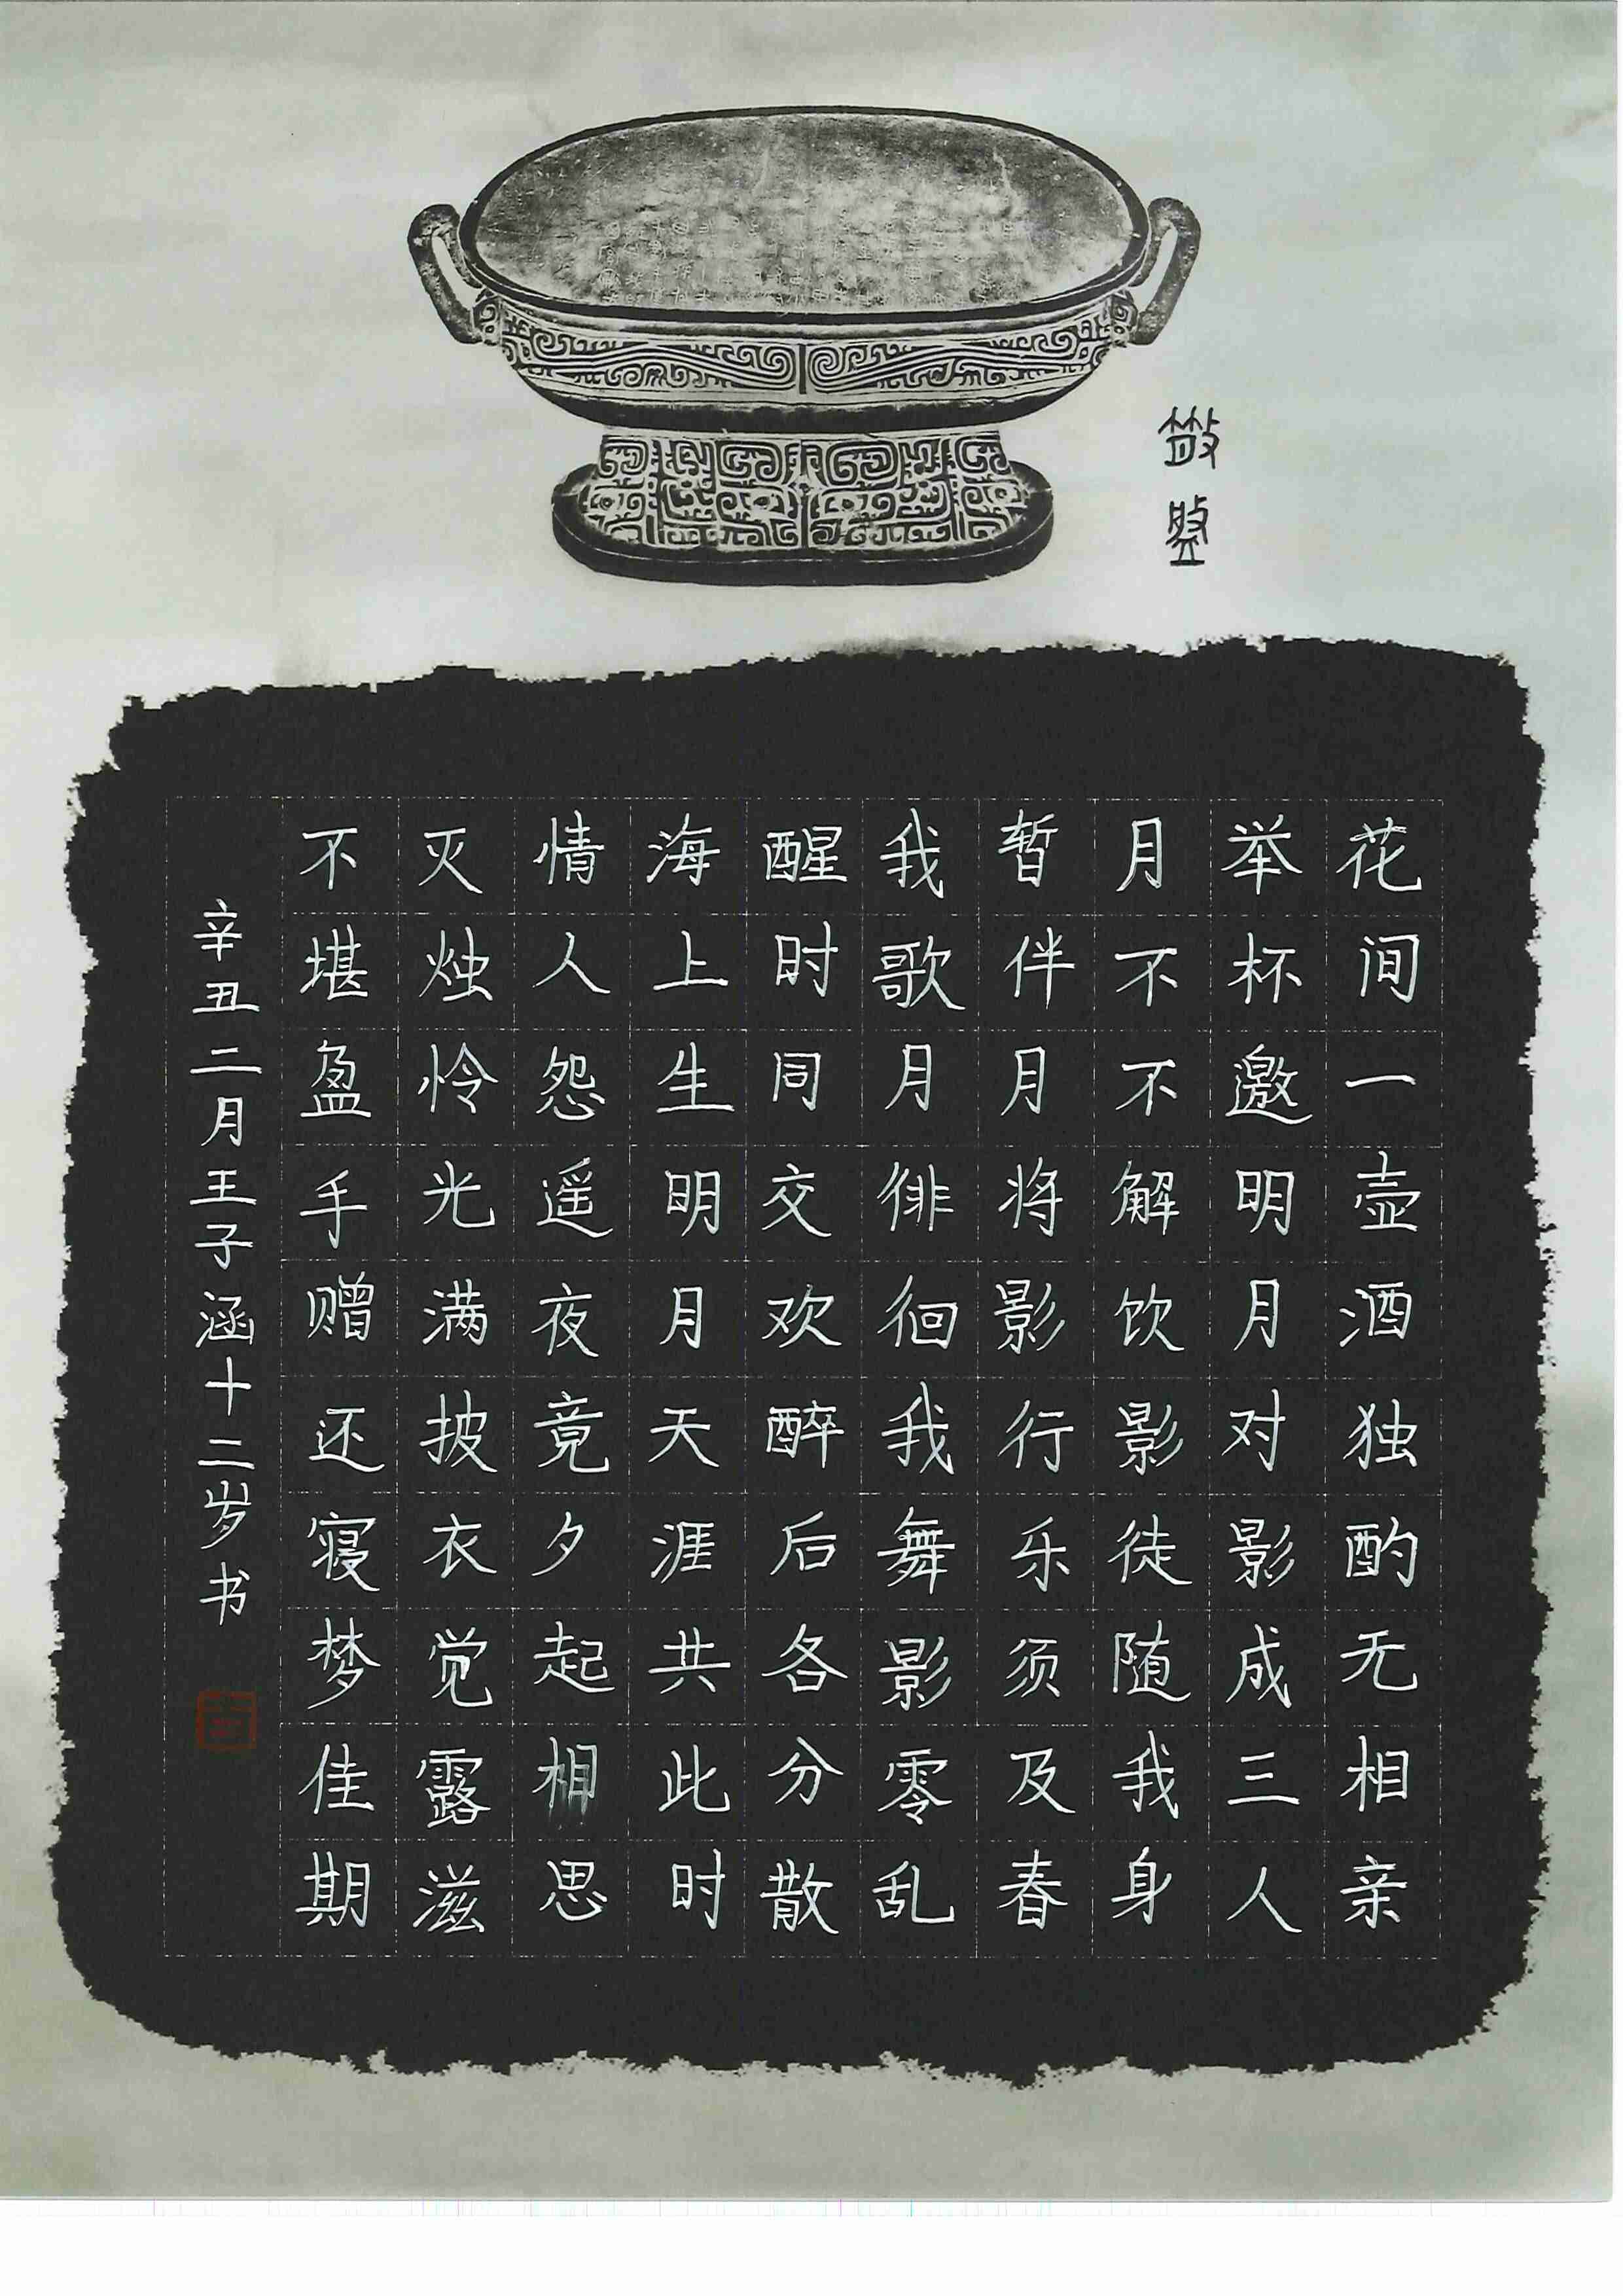 花间一壶酒独酌无相亲
举杯邀明月对影成三人
月不不解饮影徒随我身
暂伴月将影行乐须及春
我歌月徘徊我舞影零乱
醒时同交欢醉后各分散
海上生明月天涯共此时
情人怨遥夜竟夕起相思
灭烛怜光满披衣觉露滋
不堪盈手赠还寝梦佳期
辛丑二月王子涵十二岁书